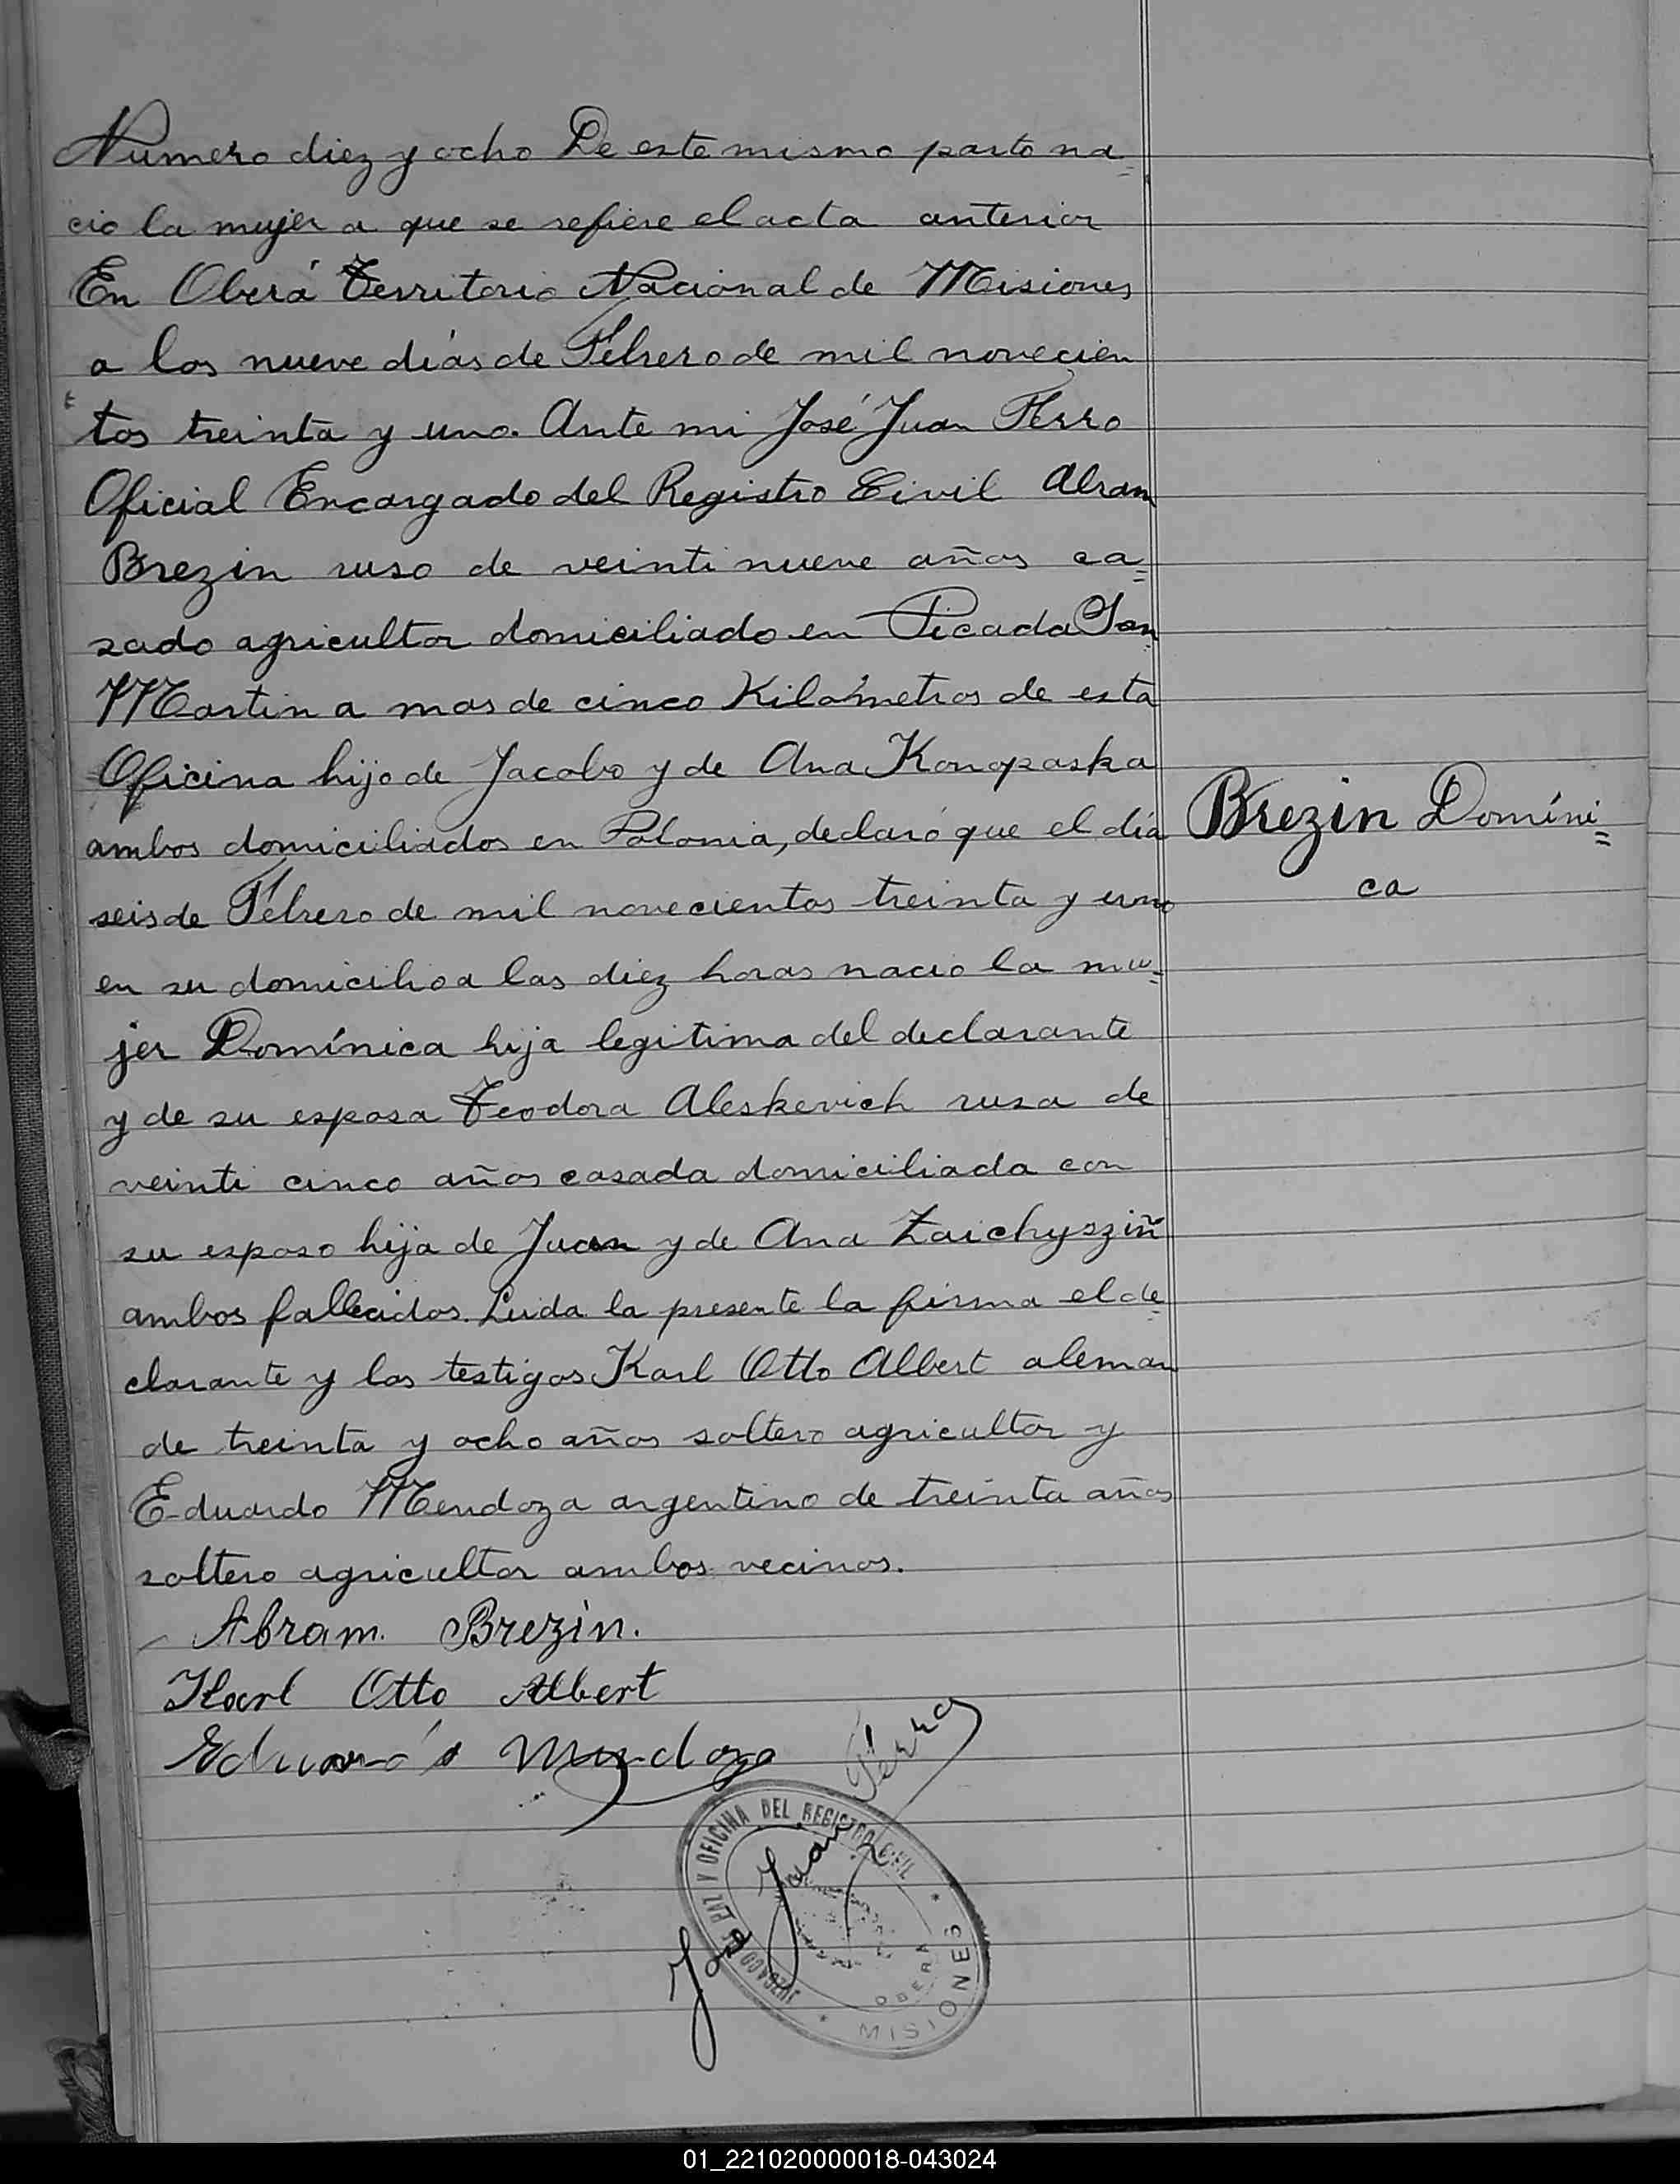 Numero diez y ocho De este mismo parto na=
cio la mujer a que se refiere el acta anterior
En Oberá Territorio Nacional de Misiones
a los nueve días de Febrero de mil novecien
tos treinta y uno. Ante mi José Juan Ferro
Oficial Encargado del Registro Civil Abram
Brezin ruso de veinti nueve años ca=
sado agricultor domiciliado en Picada San
Martin a mas de cinco Kilómetros de esta
Oficina hijo de Jacobo y de Ana Konopaska
ambos domiciliados en Polonia, declaró que el día
seis de Febrero de mil novecientos treinta y uno
en su domicilio a las diez horas nacio la mu=
jer Domínica hija legitima del declarante
y de su esposa Teodora Aleskevich rusa de
veinti cinco años casada domiciliada con
su esposo hija de Juan y de Ana Zaichysziñ
ambos fallecidos. Leida la presente la firma el de=
clarante y los testigos Karl Otto Albert aleman
de treinta y ocho años soltero agricultor y
Eduardo Mendoza argentino de treinta años
soltero agricultor ambos vecinos.
Abram. Brezin.
Karl Otto Albert
Eduardo Mendoza
José Juan Ferro
JUZGADO DE PAZ Y OFICINA DEL REGISTRO CIVIL
OBERA
MISIONES
Brezin Domíni=
ca
01_221020000018-043024